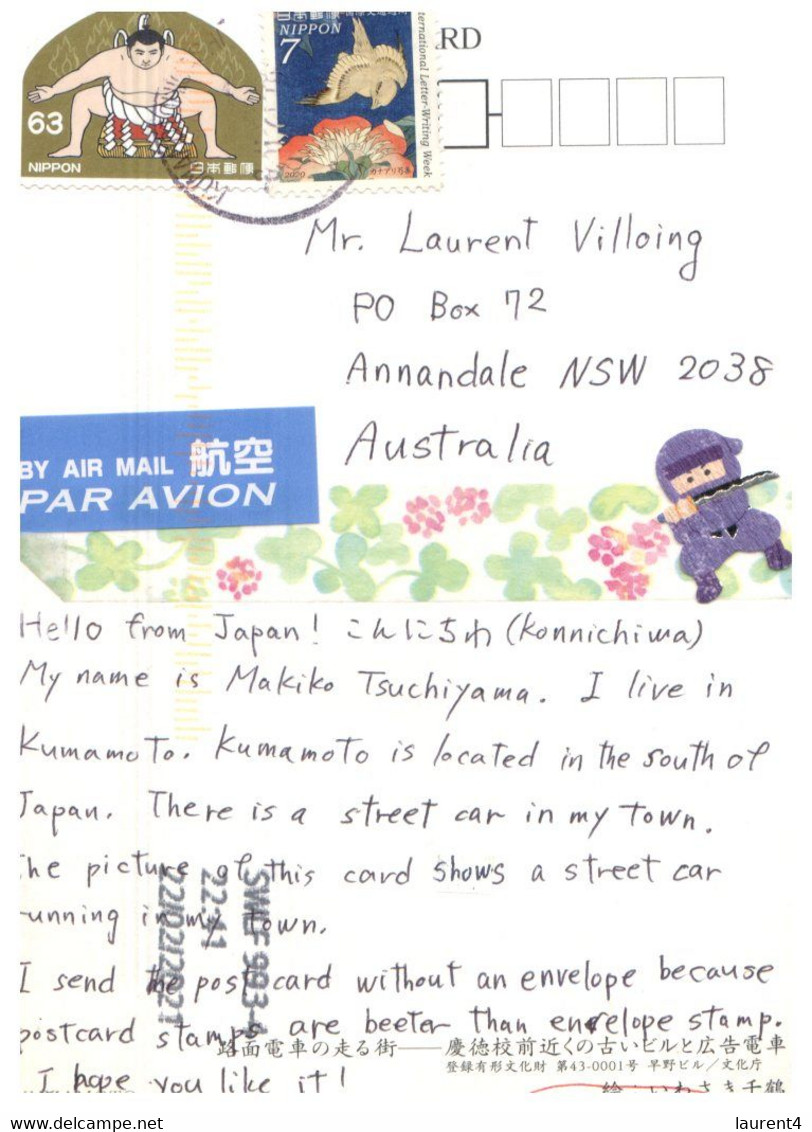 63
NIPPON 日本郵便
日本郵便
NIPPON
7
ternational Letter-Writing Week
2020
RD
KUMA
Mr. Laurent Villoing
PO Box 72
Annandale NSW 2038
Australia
BY AIR MAIL 航空
PAR AVION
Hello from Japan! こんにちわ (Konnichiwa)
My name is Makiko Tsuchiyama. I live in
Kumamoto. Kumamoto is located in the south of
Japan. There is a street car in my town.
he picture of this card shows a street car
unning in my town.
I send the post card without an envelope because
postcard stamps are beeter than envelope stamp.
I hope you like it!
SWLF 993-1
22:41
22/02/2021
路面電車の走る街――慶徳校前近くの古いビルと広告電車
登録有形文化財 第43-0001号 早野ビル／文化庁
絵・いわさき千鶴
laurent4